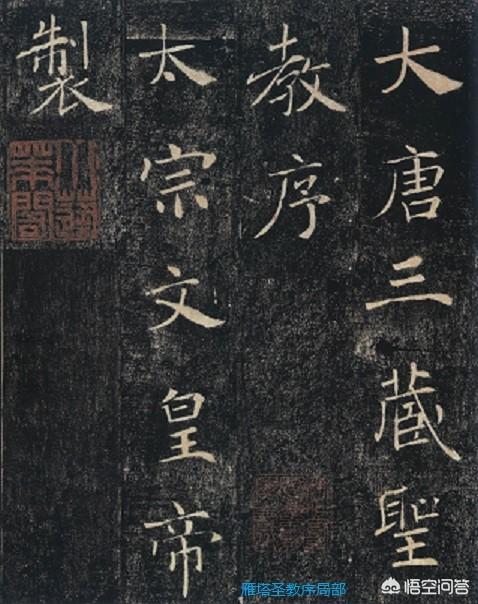 大唐三藏聖
教序
太宗文皇帝
製
雁塔圣教序局部
悟空问答